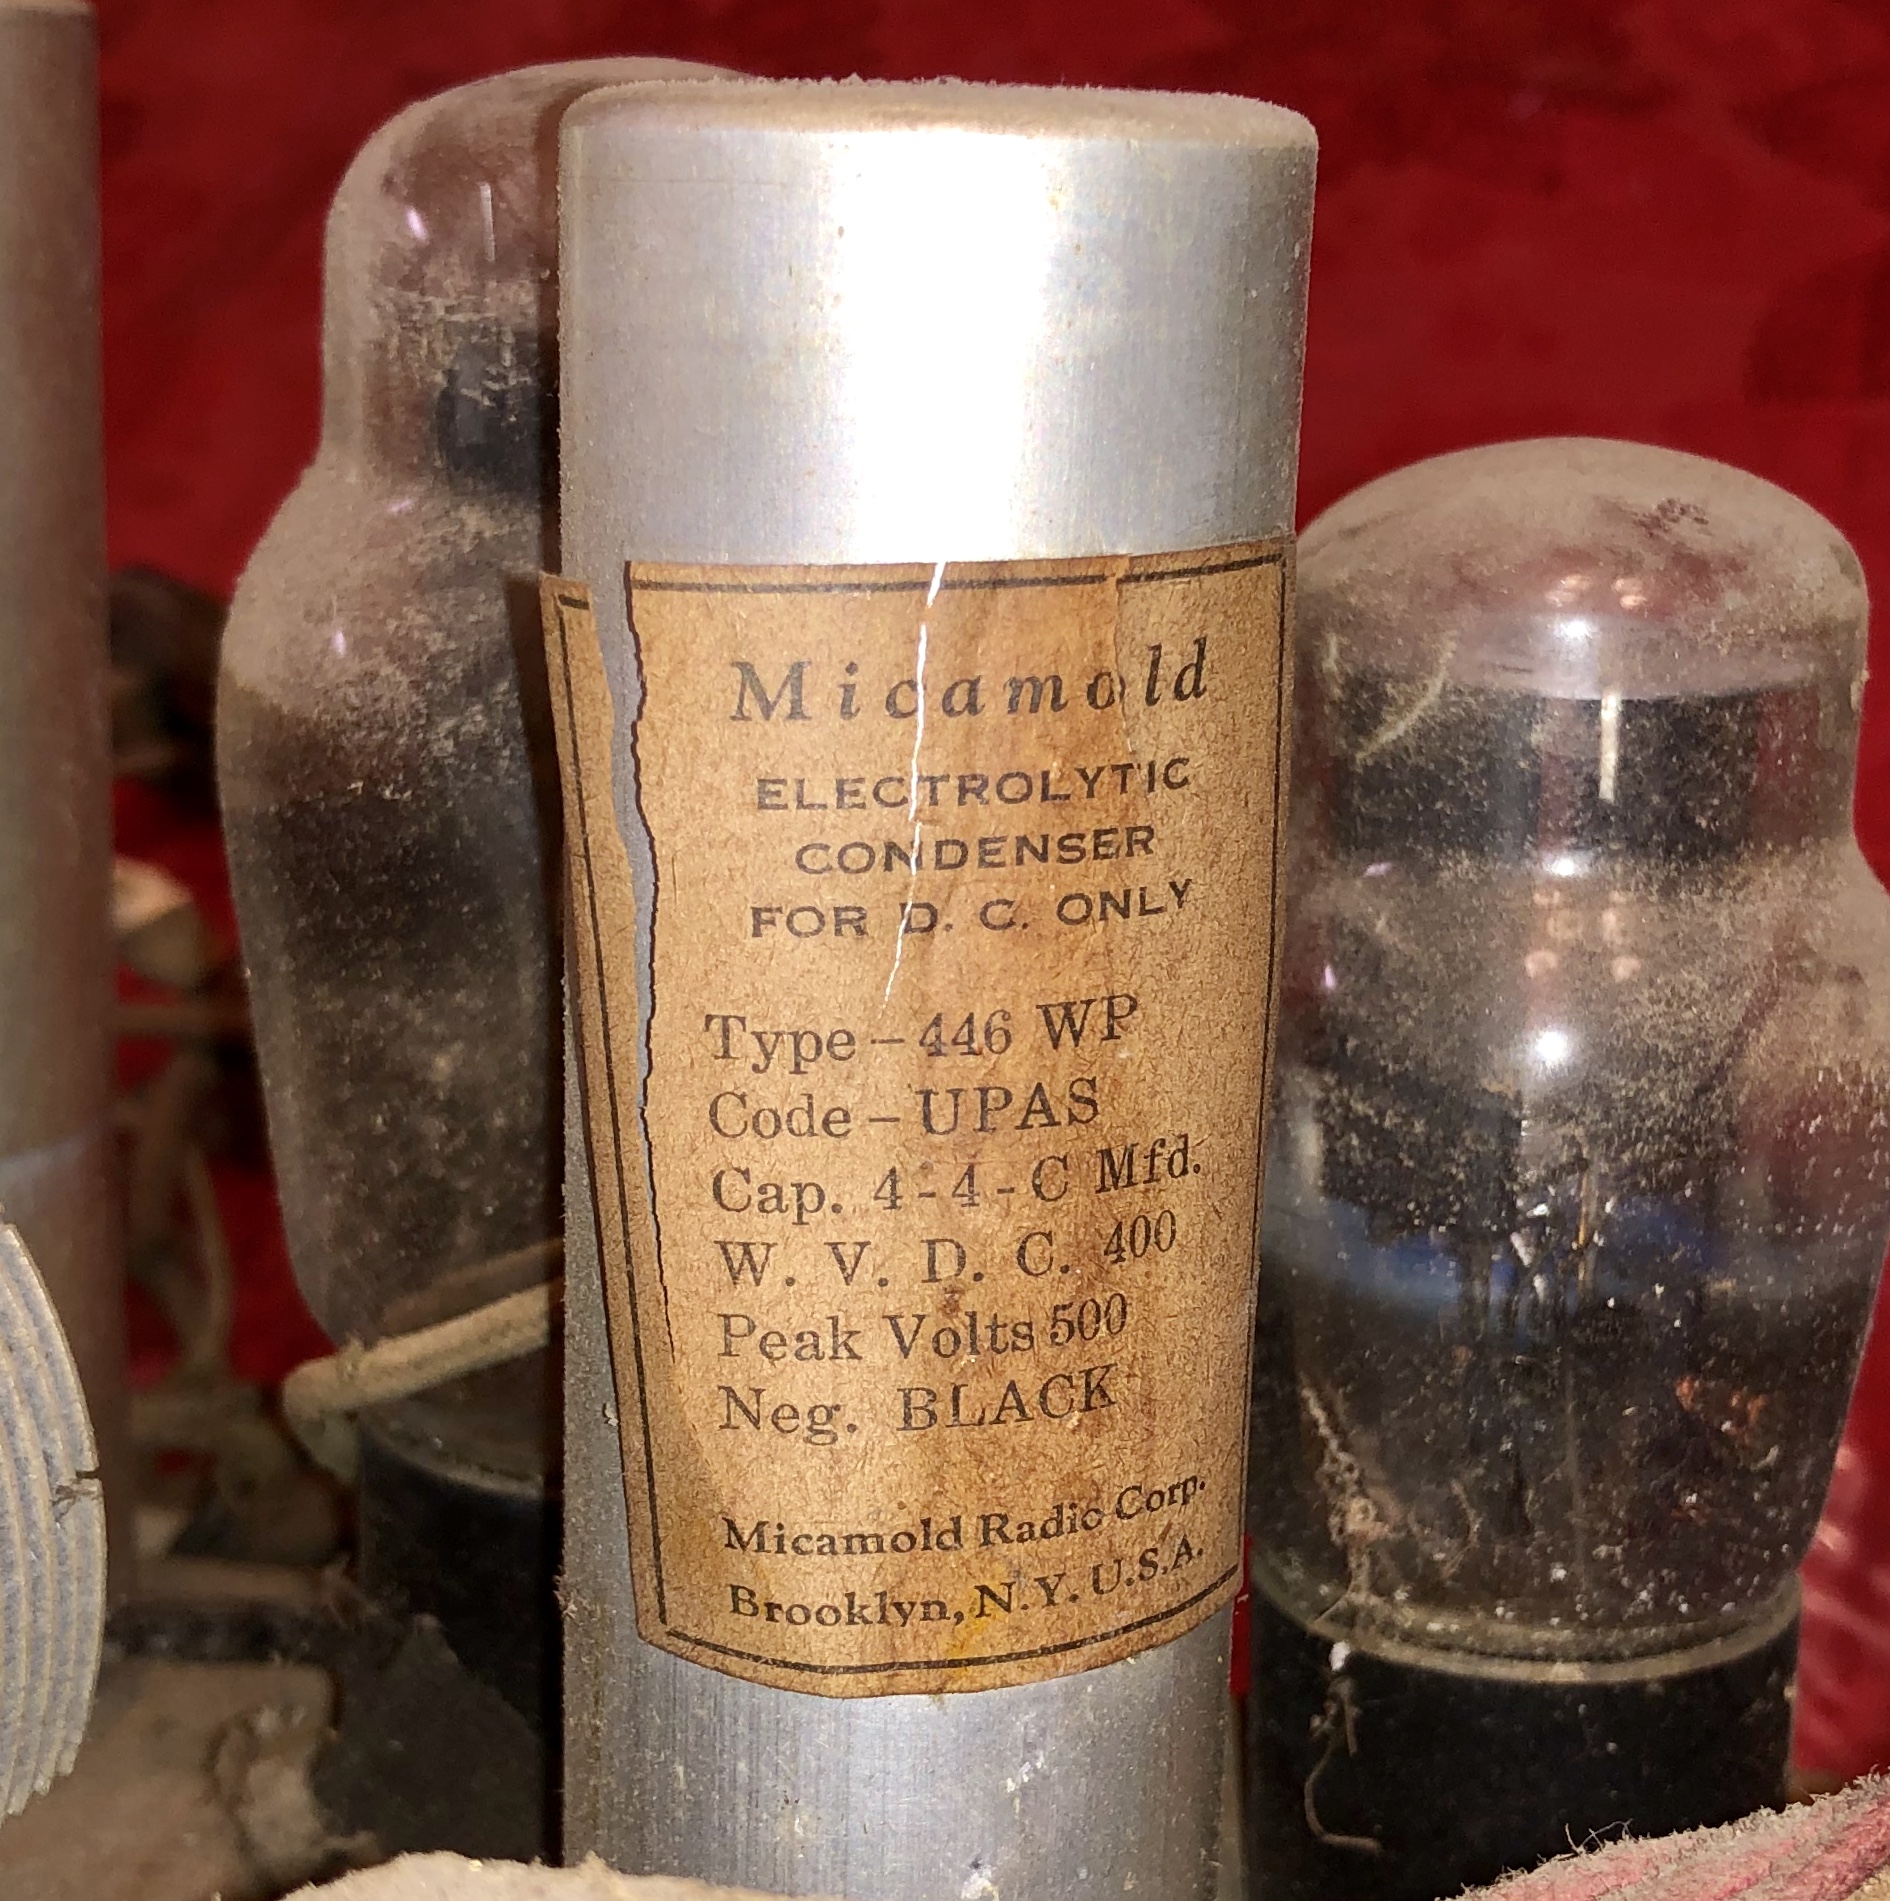 Micamold
ELECTROLYTIC
CONDENSER
FOR D. C. ONLY
Type – 446 WP
Code – UPAS
Cap. 4 - 4 - C Mfd.
W. V. D. C. 400
Peak Volts 500
Neg. BLACK
Micamold Radio Corp.
Brooklyn, N.Y. U.S.A.